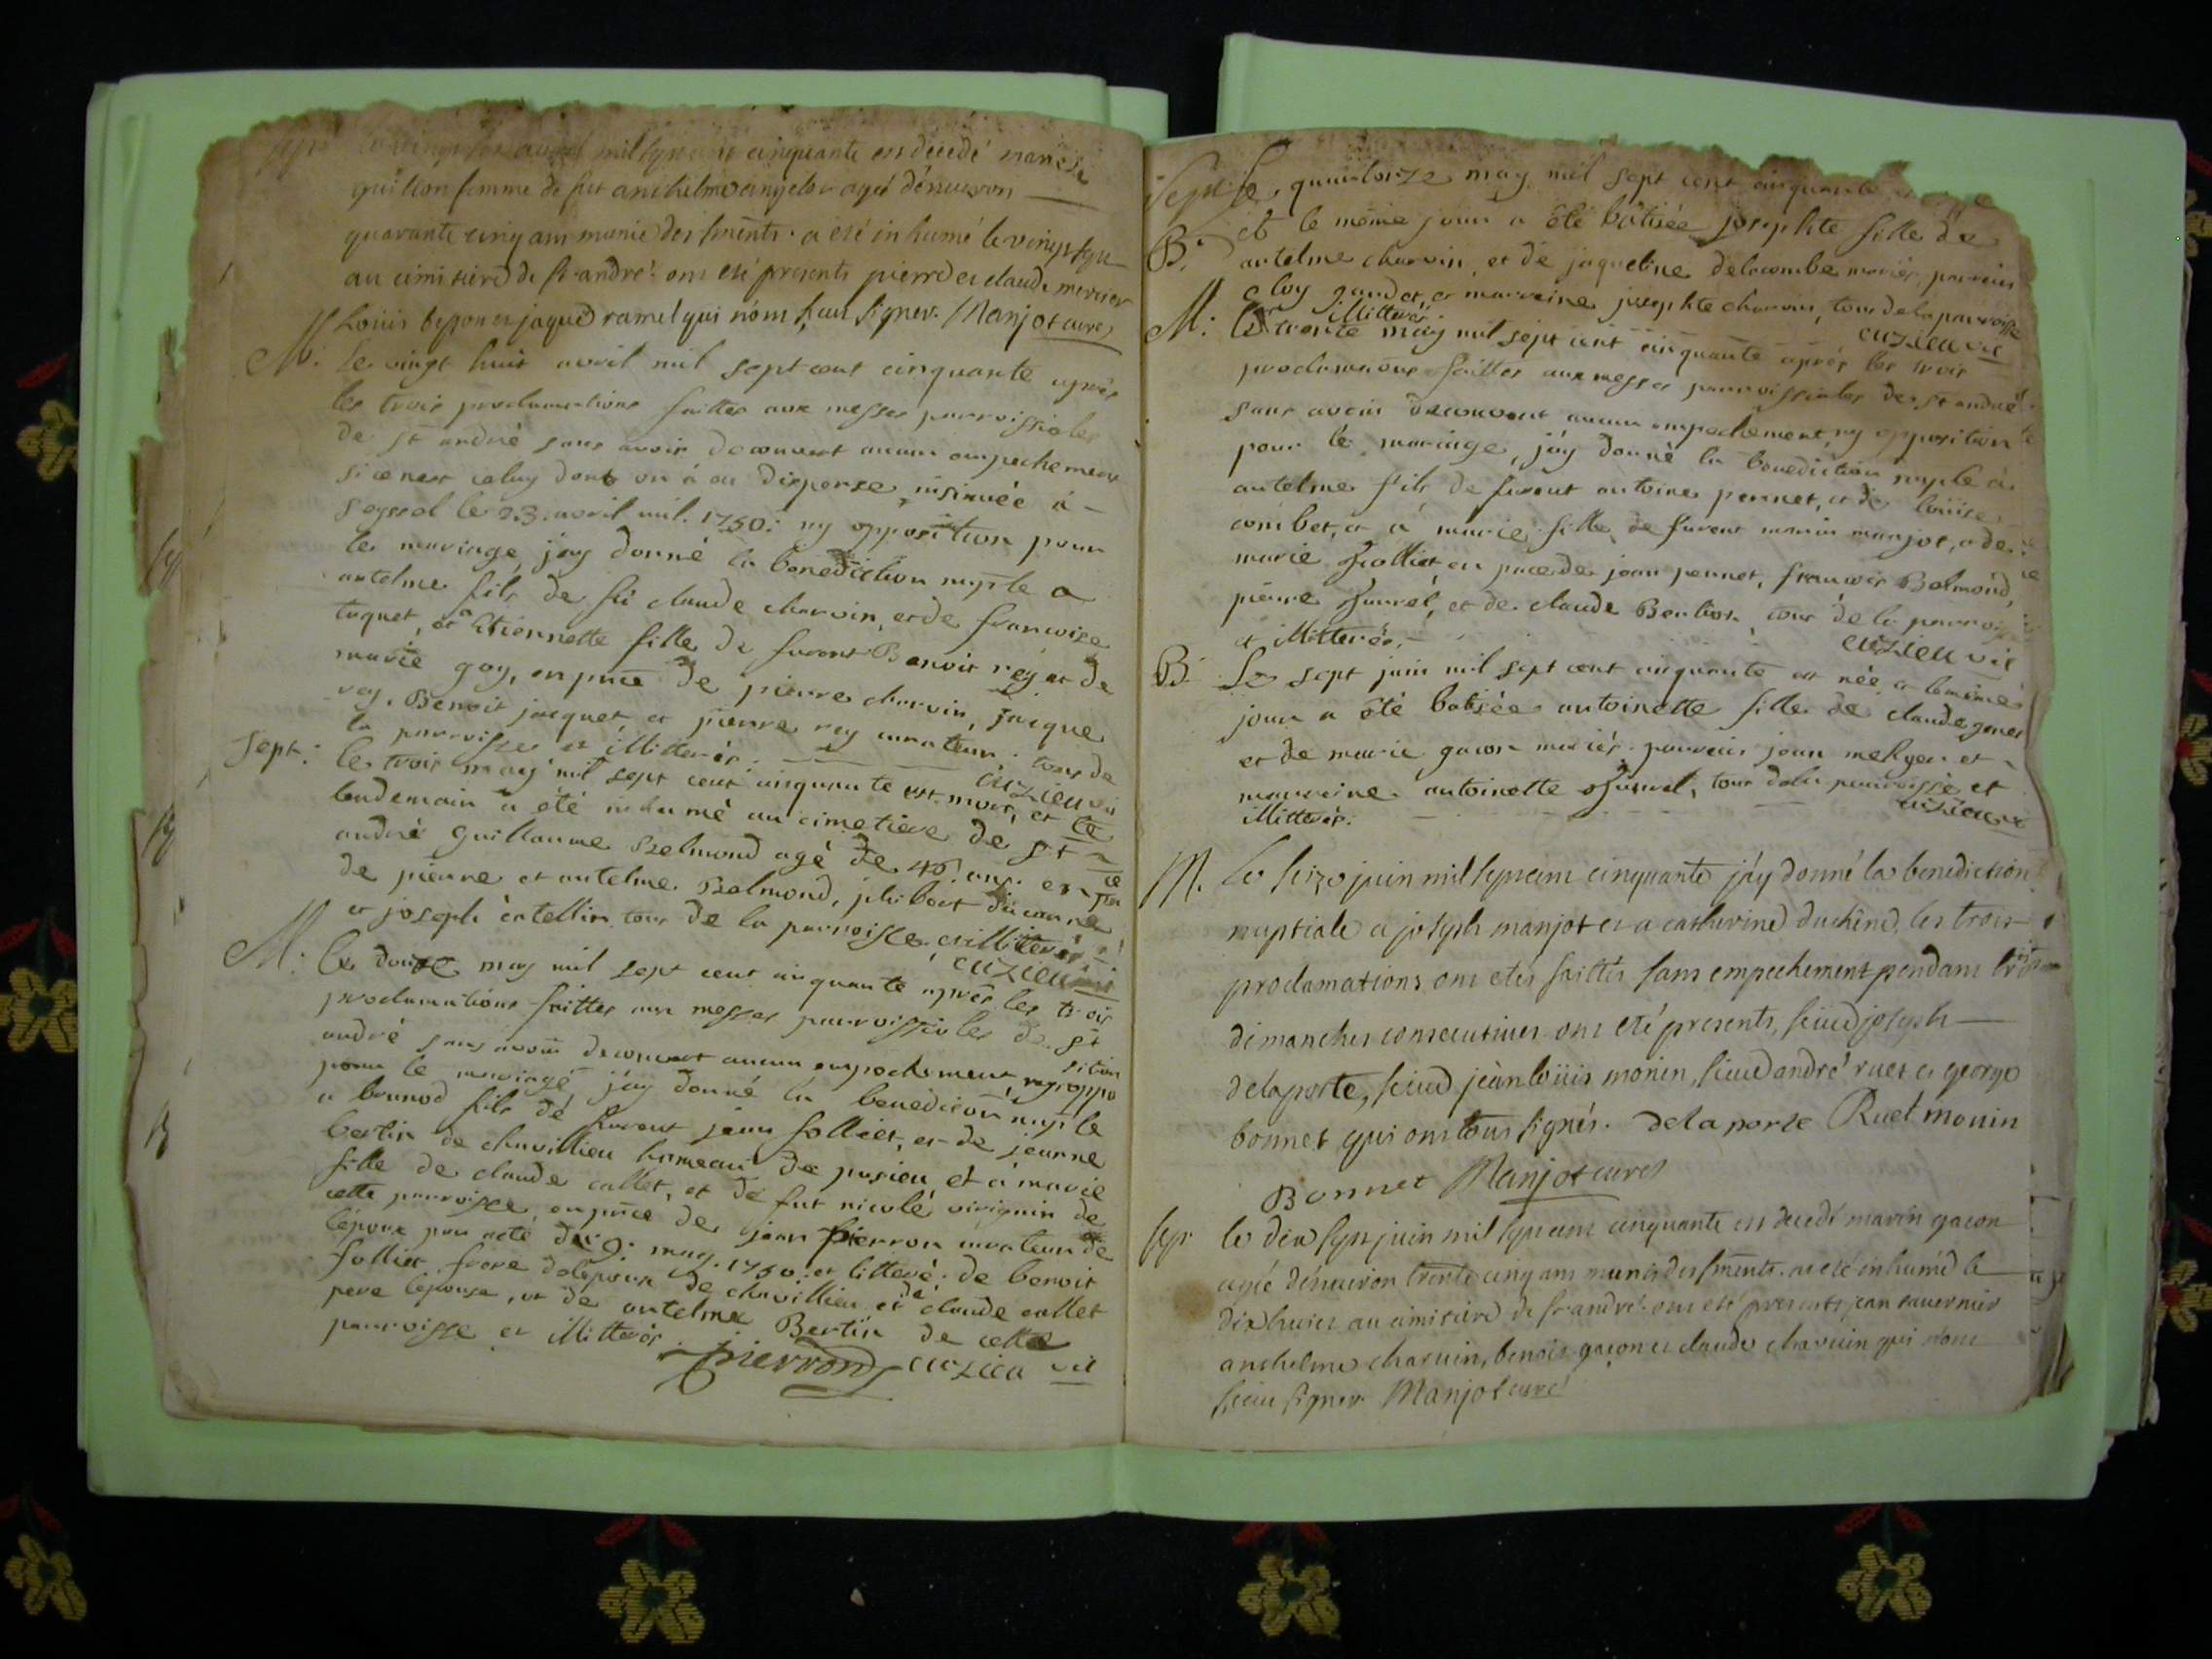 sept le vingt six avril mil sept cent cinquante est decedé
guillon femme de feu anthelme agée d'enuiron
quarante cinq ans munie des sments. a eté inhumé le vingt sept
au cimitiere de st andré. ont eté presents pierre et claude mercier
Loüis et jaque ramel qui n'ont sceu signer. Manjot curé
M. le vingt huit avril mil sept cent cinquante après
les trois proclamations faittes aux messes parroissiales
de st andré sans avoir decouvert aucun empechement
si ce n'est celuy dont on a eu dispense, insinuée à
seyssel le 23. avril mil. 1750. ny opposition pour
le mariage, j'ay donné la benediction nuptle a
antelme fils de fû claude charvin, et de francoise
tuquet, et a Etiennette fille de furent Benoit rey et de
marie goy, en pnce de pierre charvin, jacque
rey, Benoit jacquet et pierre rey curateur. tous de
la parroisse et illitterés. cuzieu vic
sept. le trois may mil sept cent cinquante est mort, et le
lendemain a été inhumé au cimetiere de st
andré guillaume Belmond agé de 46. ans. en pnce
de pierre et antelme Belmond,
et joseph tous de la parroisse, et illitterés.
cuzieu vic
M. Le douze may mil sept cent cinquante après les trois
proclamations faittes aux messes parroissiales de st
andré sans avoir decouvert aucun empechement, ny oppo
sition
pour le mariage j'ay donné la benediction nuptle
a bennod fils de furent jean folliet, et de jeanne
bertin de chavillieu hameau de pusieu, et à marie
fille de claude callet, et de fut nicole virignin de
cette parroisse, en pnce de jean pierron curateur de
l'époux par acte du 9. may. 1750. et litteré. de benoit
folliet frere de l'epoux de chavillieu et de claude callet
pere l'epouse, et de antelme Bertin de cette
parroisse et illitterés. pierron cuzieu vic
sept. Le quatorze may mil sept cent cinquante
B. et le même jour a été batisée josephte fille de
antelme charvin, et de jaqueline delacombe mariés, parrein
eloy gaudet, et marreine josephte charvin, tous de la parroisse
illitterés cuzieu vic
M. Le trente may mil sept cent cinquante après les trois
proclamations faittes aux messes parroissiales de st andré
sans avoir decouvert aucun empechement, ny opposition
pour le mariage, j'ay donné la benediction nuptle à
antelme fils de furent antoine pernet, et de loüise
combet, et à marie fille de furent marin manjot, et de
marie folliet en pnce de jean pernet, francois Belmond,
pierre et de claude tous de la parroisse
et illitterés. cuzieu vic
B. Le sept juin mil sept cent cinquante est née et le même
jour a été batisée antoinette fille de claude
et de marie gacon mariés. parrein jean et
marreine antoinette tous de la parroisse et
illitterés. cuzieu vic
M. Le seize juin mil sept cent cinquante j'ay donné la benediction
nuptiale a joseph manjot et a catherine duchêne. les trois
proclamations ont etés faittes sans empechement pendant trois
dimanches consecutiues ont eté presents, sieur joseph
delaporte, sieur jean loüis monin, sieur andré ruet et george
bonnet qui ont tous signés. delaporte Ruet monin
Bonnet Manjot curé
sept le dix sept juin mil sept cent cinquante est decedé marin gacon
agée d'enuiron trente cinq ans munis des sments. a eté inhumé le
dix huict au cimitiere de st andré. ont eté presents jean tauernier
anthelme charuin, benoit gaçon et claude charuin qui n'ont
sceu signer Manjot curé